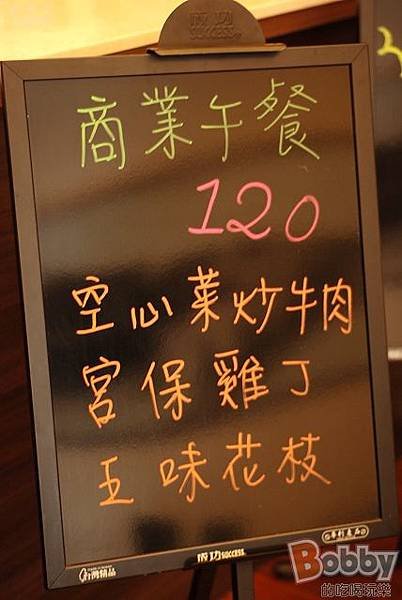 成功
SUCCESS
商業午餐
120
空心菜炒牛肉
宮保雞丁
王味花枝
成功 SUCCESS
Bobby
的吃喝玩樂